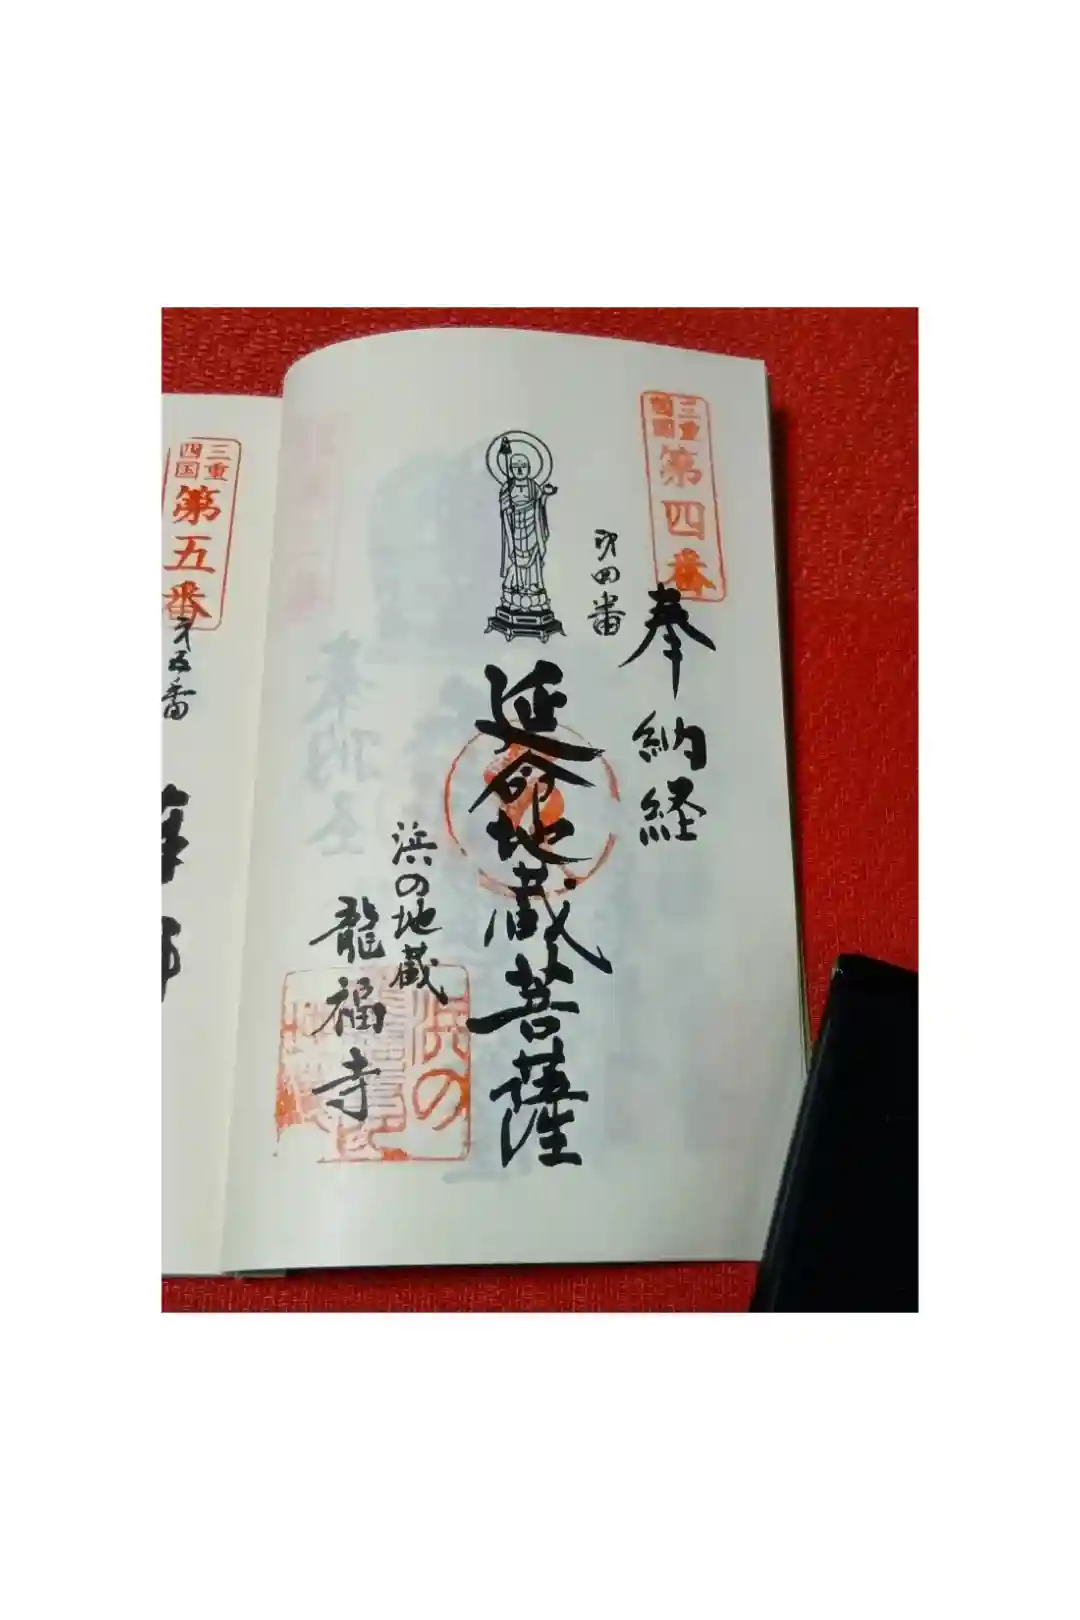 三重
四国
第四番
奉納経
第四番
延命地蔵菩薩
浜の地蔵
龍福寺
浜の
三重
四国
第五番
第五番